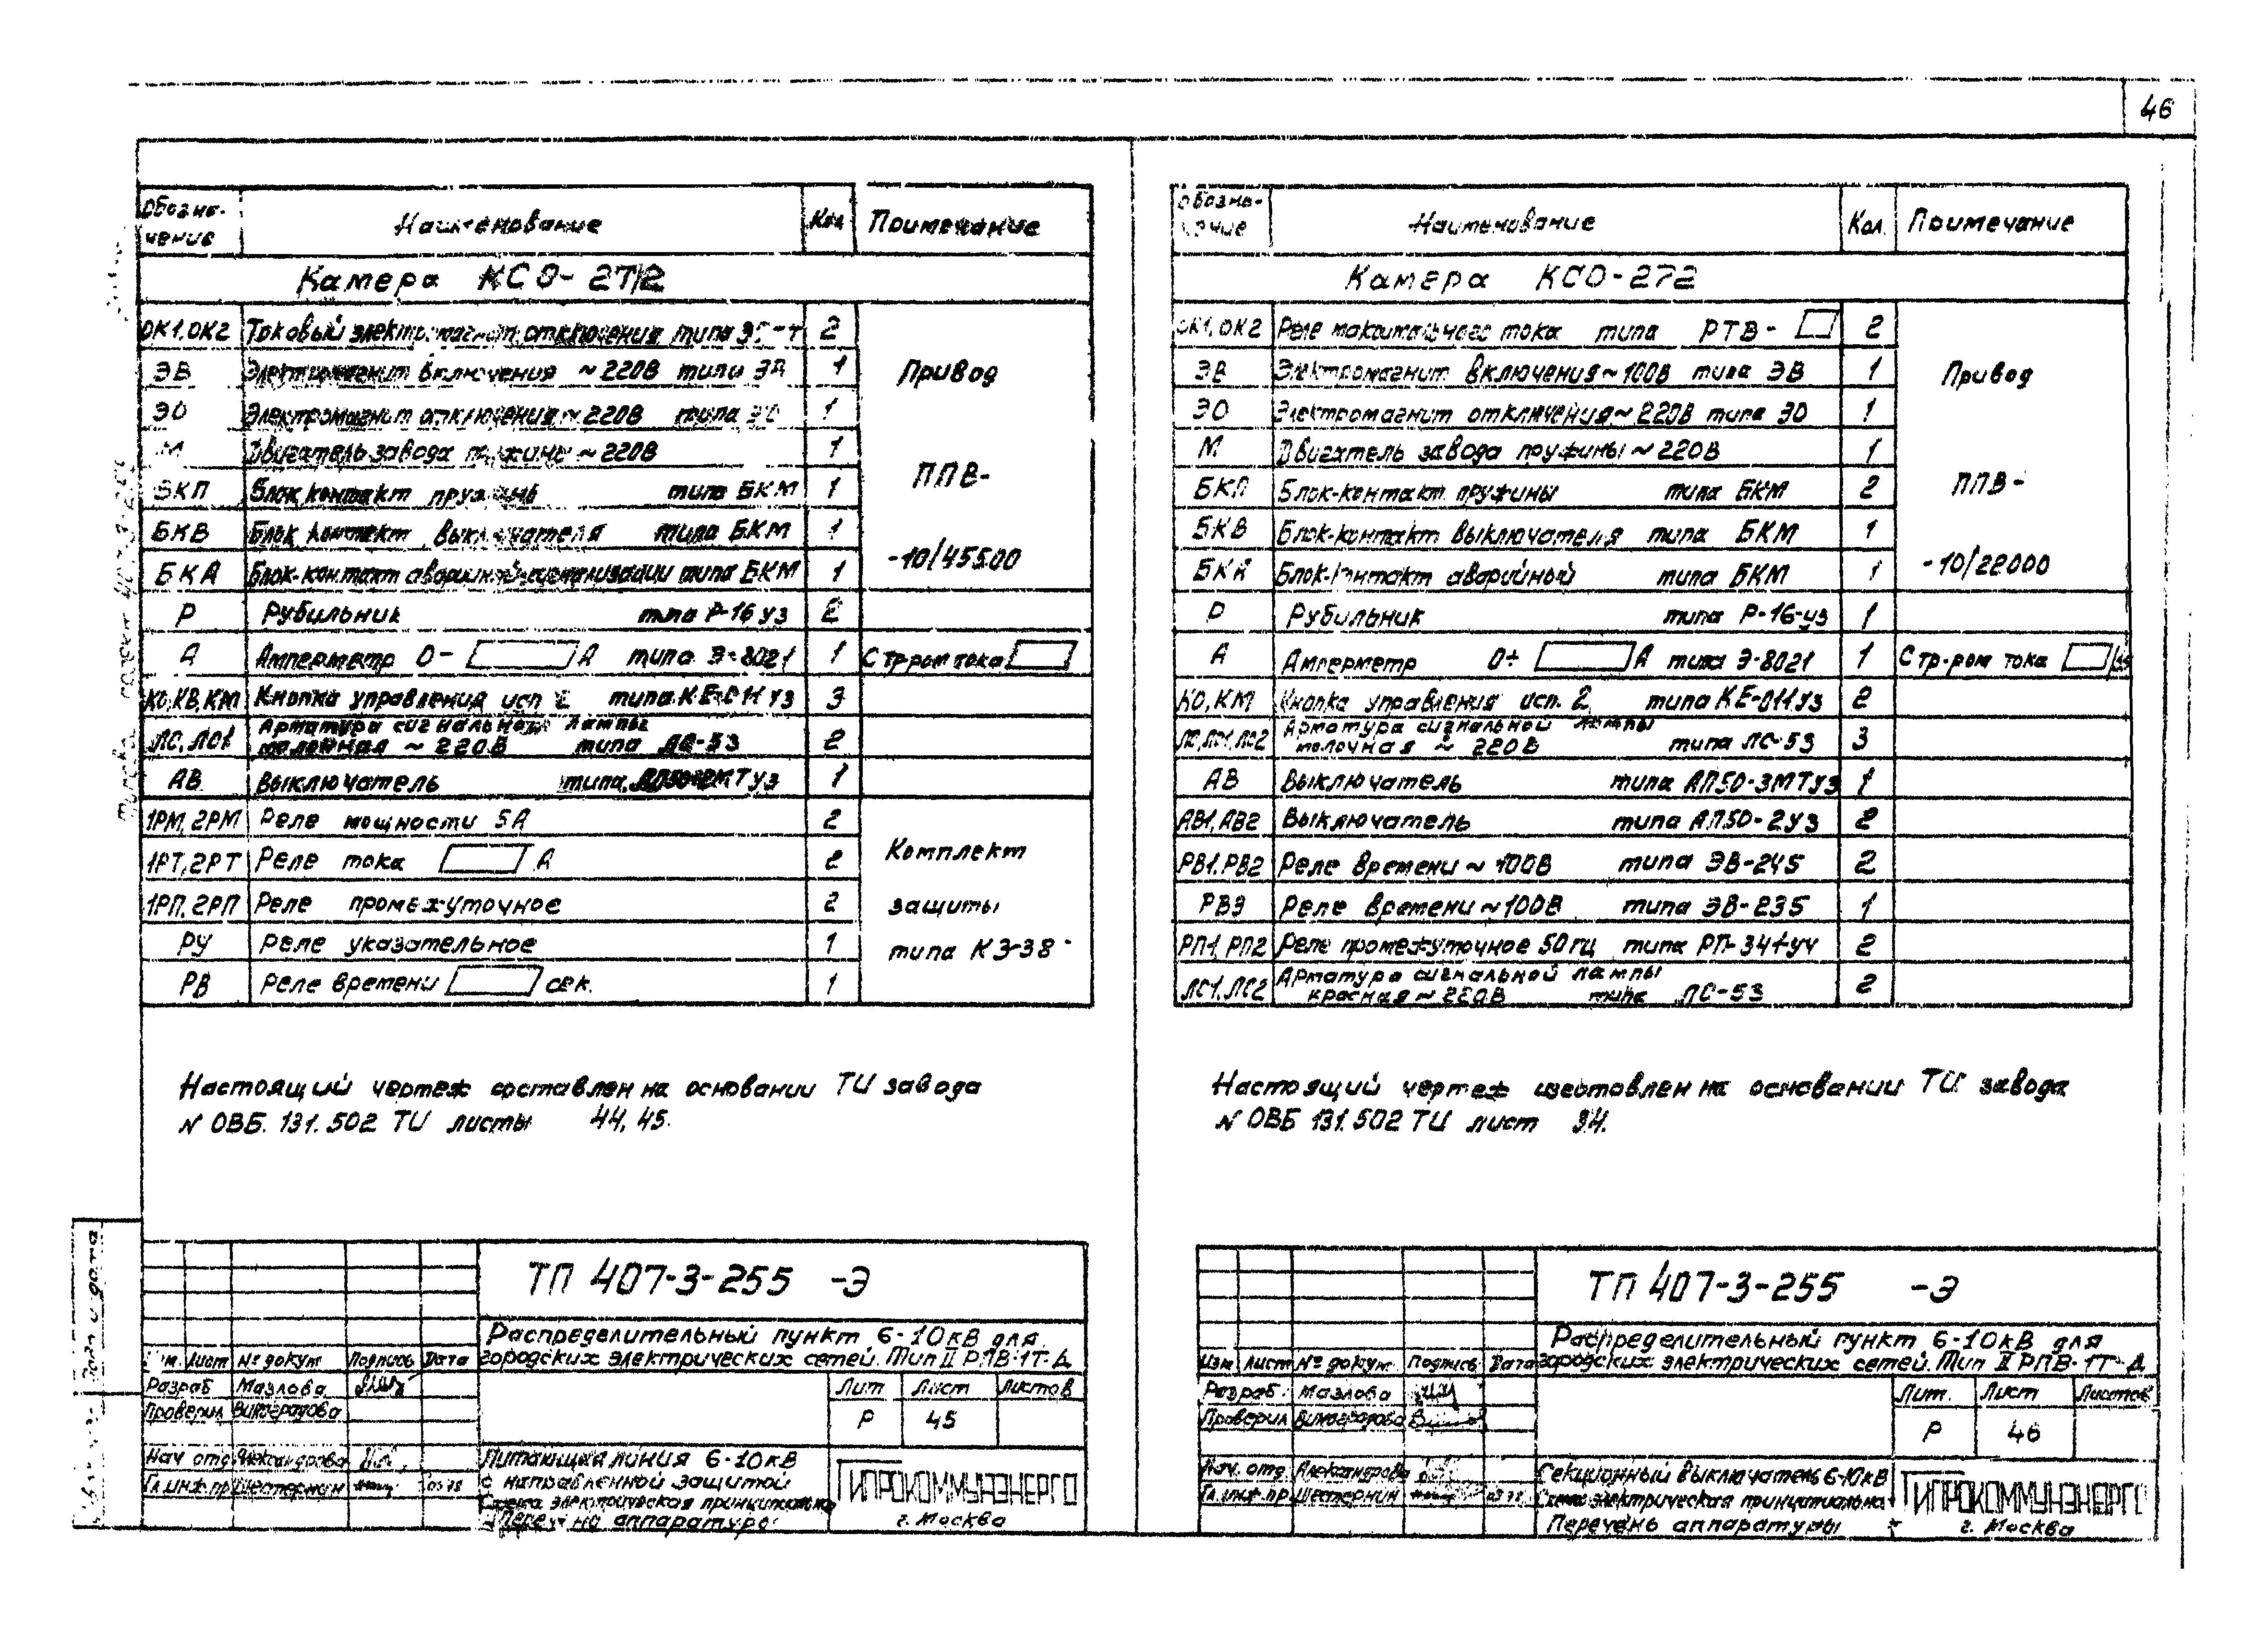 46
Обозна-
чение
Наименование
Кол
Примечание
Камера КСО-272
ОК1,ОК2 Токовый электромагнит отключения типа 2
ЭВ Электромагнит включения ~220В типа ЭВ 1
ЭО Электромагнит отключения ~220В типа ЭО 1
М Двигатель завода пружины ~220В 1
БКП Блок контакт пружины типа БКМ 1
БКВ Блок контакт выключателя типа БКМ 1
БКА Блок-контакт аварийной сигнализации типа БКМ 1
Привод
ППВ-
-10/45500
Р Рубильник типа Р-16 уз 2
А Амперметр 0- А типа Э-8021 1 С тр-ром тока
КО,КВ,КМ Кнопка управления исп 2 типа КЕ-011 уз 3
ЛС,ЛО1 Арматура сигнальной лампы
молочная ~220В типа ЛС-53 2
АВ Выключатель типа 1
1РМ,2РМ Реле мощности 5А 2
1РТ,2РТ Реле тока А 2
1РП,2РП Реле промежуточное 2
РУ Реле указательное 1
РВ Реле времени сек. 1
Комплект
защиты
типа КЗ-38
Настоящий чертеж составлен на основании ТИ завода
N ОВБ. 131.502 ТИ листы 44, 45.
ТП 407-3-255 -Э
Распределительный пункт 6-10кВ для
городских электрических сетей. Тип II РПВ-1Т-Д
Изм. Лист № докум Подпись Дата
Разраб Мазлова
Проверил Виноградова
Нач отд Александрова
Гл.инж.пр Шестерник 03 78
Лит Лист Листов
Р 45
Питающая линия 6-10кВ
с направленной защитой
Схема электрическая принципиальная
Перечень аппаратуры
ГИПРОКОММУНЭНЕРГО
г. Москва
Подп и дата
Обозна-
чение
Наименование
Кол.
Примечание
Камера КСО-272
ОК1,ОК2 Реле максимального тока типа РТВ- 2
ЭВ Электромагнит включения ~100В типа ЭВ 1
ЭО Электромагнит отключения ~220В типа ЭО 1
М Двигатель завода пружины ~220В 1
БКП Блок-контакт пружины типа БКМ 2
БКВ Блок-контакт выключателя типа БКМ 1
БКА Блок-контакт аварийный типа БКМ 1
Привод
ППВ-
-10/22000
Р Рубильник типа Р-16-уз 1
А Амперметр 0÷ А типа Э-8021 1 С тр-ром тока
КО,КМ Кнопка управления исп. 2 типа КЕ-011уз 2
ЛО,ЛО1,ЛО2 Арматура сигнальной лампы
молочная ~220В типа ЛС-53 3
АВ Выключатель типа АП50-3МТУз 1
АВ1,АВ2 Выключатель типа АП50-2Уз 2
РВ1.РВ2 Реле времени ~100В типа ЭВ-245 2
РВ3 Реле времени ~100В типа ЭВ-235 1
РП1,РП2 Реле промежуточное 50гц типа РП-341-уч 2
ЛС1,ЛС2 Арматура сигнальной лампы
красная ~220В типа ЛС-53 2
Настоящий чертеж изготовлен на основании ТИ завода
N ОВБ 131.502 ТИ лист 34.
ТП 407-3-255 -Э
Распределительный пункт 6-10кВ для
городских электрических сетей. Тип II РПВ-1Т-Д
Изм Лист № докум. Подпись Дата
Разраб. Мазлова
Проверил Виноградова
Нач. отд. Александрова
Гл.инж.пр. Шестерник 03 78
Лит. Лист Листов
Р 46
Секционный выключатель 6-10кВ
Схема электрическая принципиальная
Перечень аппаратуры
ГИПРОКОММУНЭНЕРГО
г. Москва